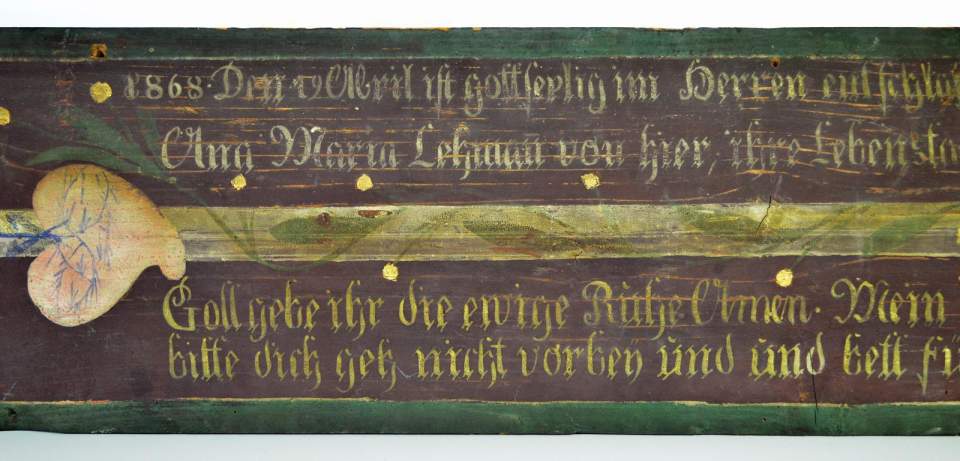 1868. Den 19 Abril ist gottseelig im Herren entschla
Ana Maria Lehman von hier, ihre Lebensta
Gott gebe ihr die ewige Ruhe Amen. Mein
bitte dich geh nicht vorbey und und bett fü